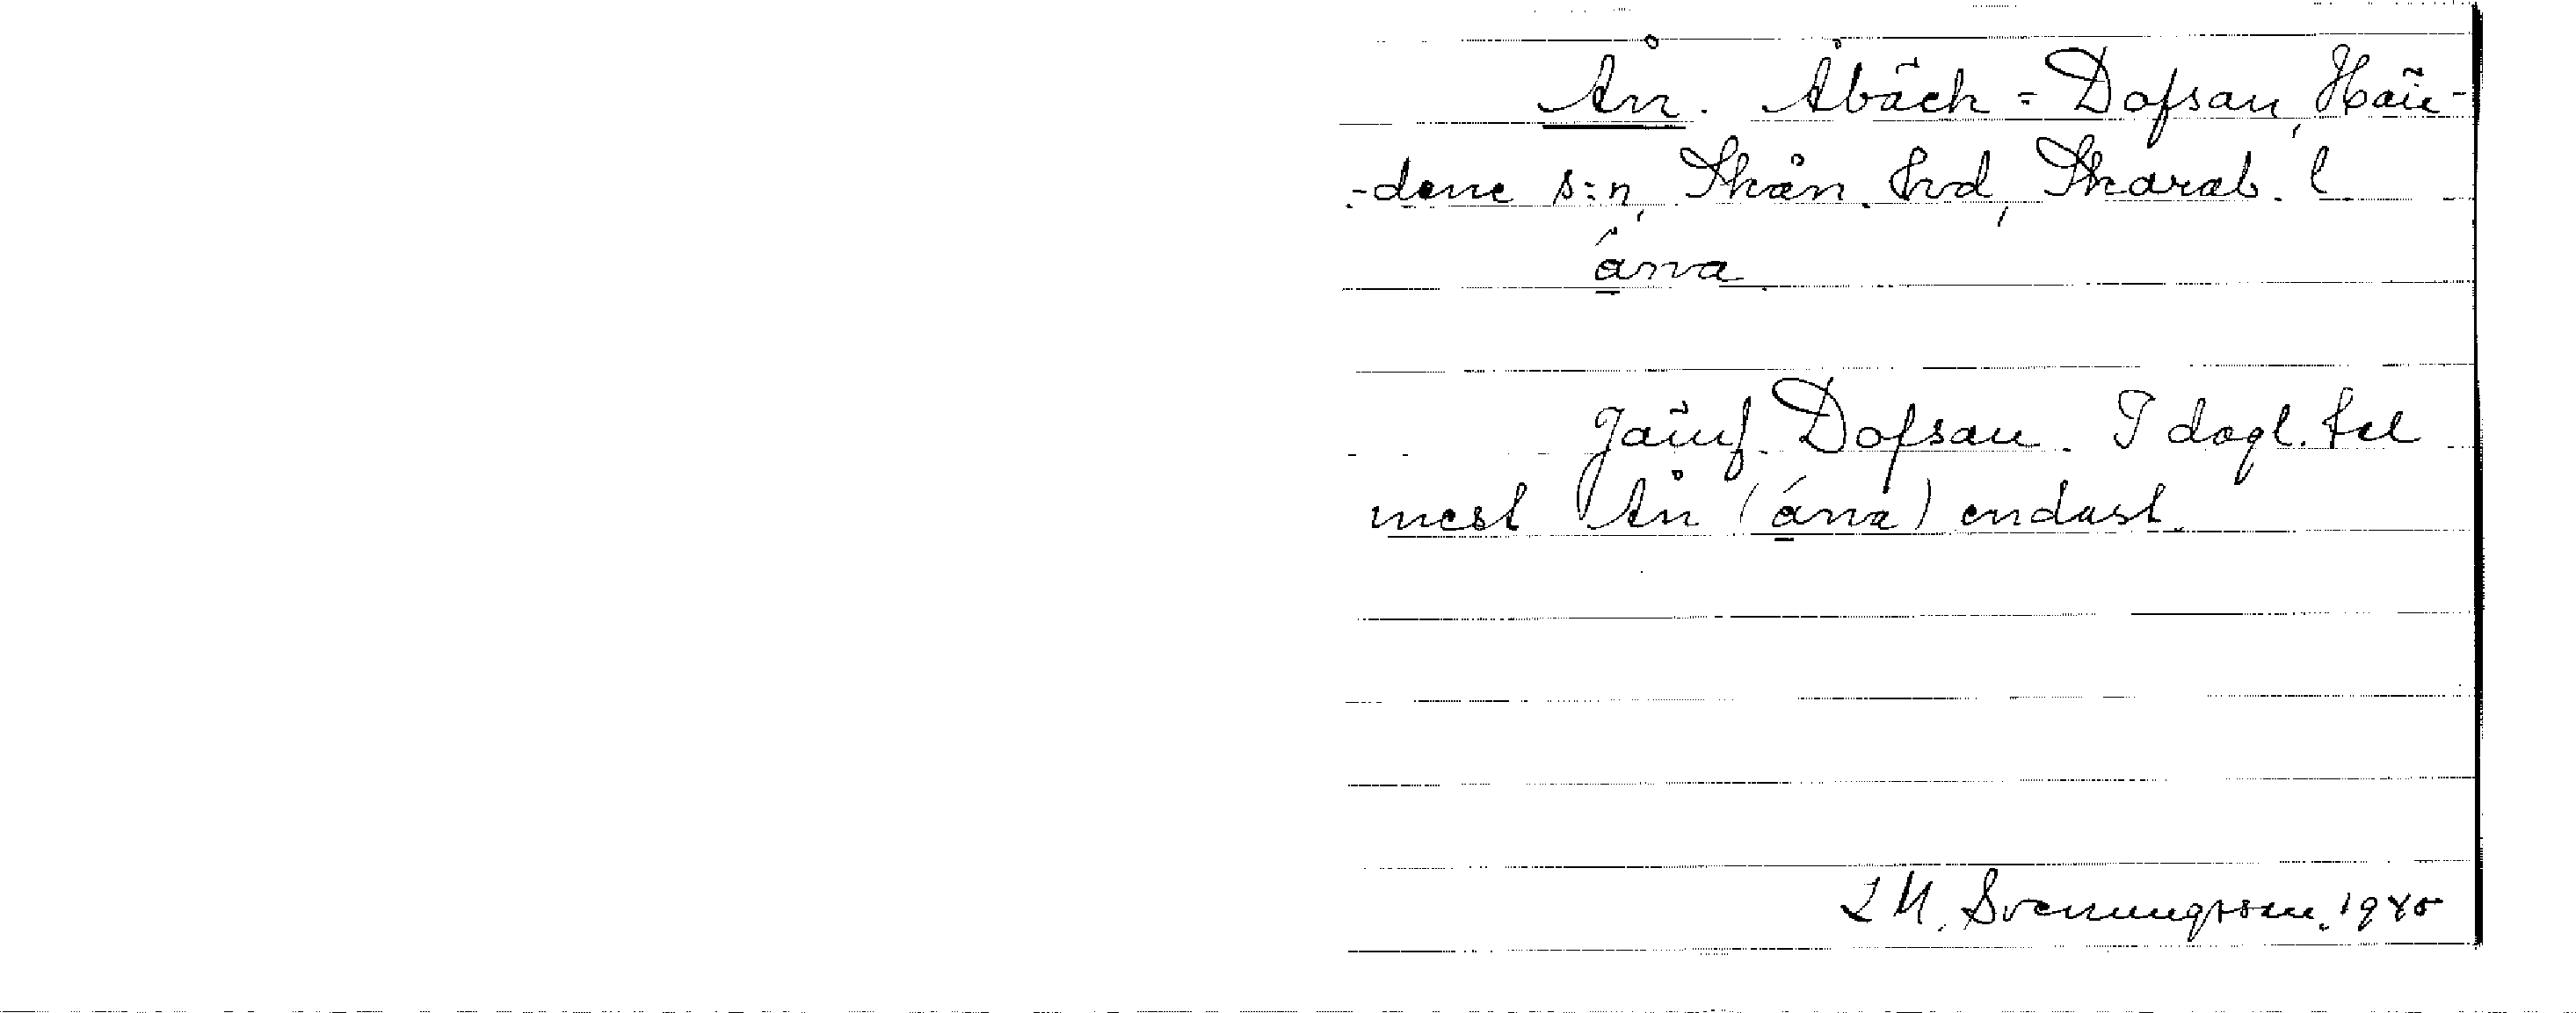 Ån. Åbäck = Dofsan, Hän-
-dene s:n, Skån. Hrd, Skarab. l
ánna
Jämf. Dofsan. I dagl. tal
mest Ån (ánna) endast.
L M. Svenungsson. 1940